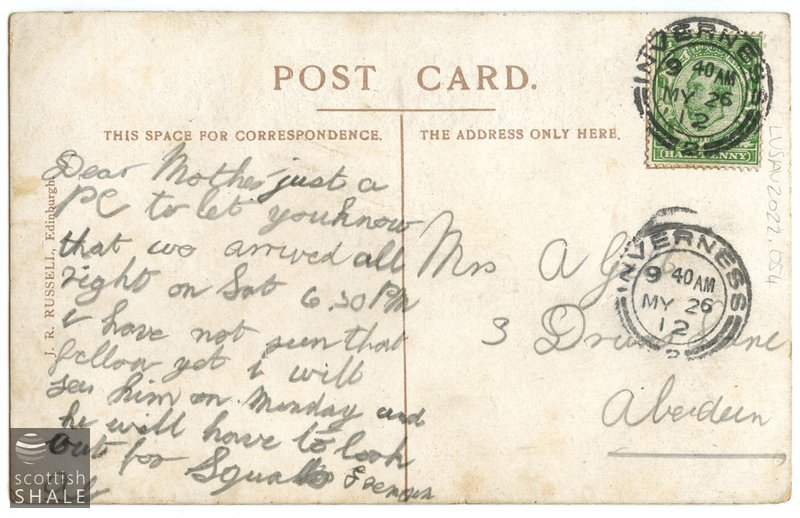 POST CARD.
THIS SPACE FOR CORRESPONDENCE.
THE ADDRESS ONLY HERE.
Dear Mother just a
PC to let you know
that we arrived all
right on Sat 6.30 PM
I have not seen that
fellow yet I will
see him on Monday and
he will have to look
out for Squalls
J. R. RUSSELL, Edinburgh
Mrs A
3
Aberdeen
INVERNESS
9 40AM
MY 26
12
2
HALFPENNY
INVERNESS
9 40AM
MY 26
12
2
LVSAV2022.054
scottish
SHALE